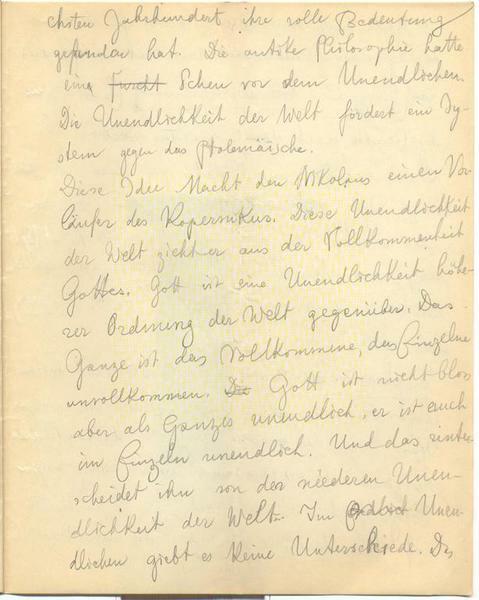 chsten Jahrhundert ihre volle Bedeutung
gefunden hat. Die antike Philosophie hatte
eine Furcht Scheu vor dem Unendlichen.
Die Unendlichkeit der Welt fordert ein Sy-
stem gegen das Ptolemäische.
Diese Idee macht den Nikolaus einen Vor-
läufer des Kopernikus. Diese Unendlichkeit
der Welt zieht er aus der Vollkommenheit
Gottes. Gott ist eine Unendlichkeit höhe-
rer Ordnung der Welt gegenüber. Das
Ganze ist das Vollkommene, das Einzelne
unvollkommen. Die Gott ist nicht blos
aber als Ganzes unendlich, er ist auch
im Einzeln unendlich. Und das unter-
scheidet ihn von der niederen Unen-
dlichkeit der Welt. Im Unen-
dlichen giebt es keine Unterschiede. Das